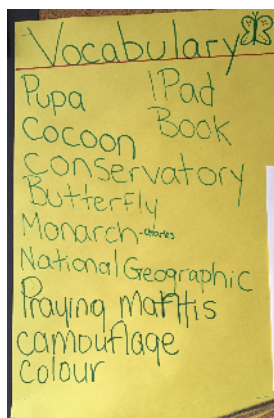 Vocabulary
Pupa
IPad
Cocoon
Book
Conservatory
Butterfly
Monarch - Charles
National Geographic
Praying mantis
camouflage
colour